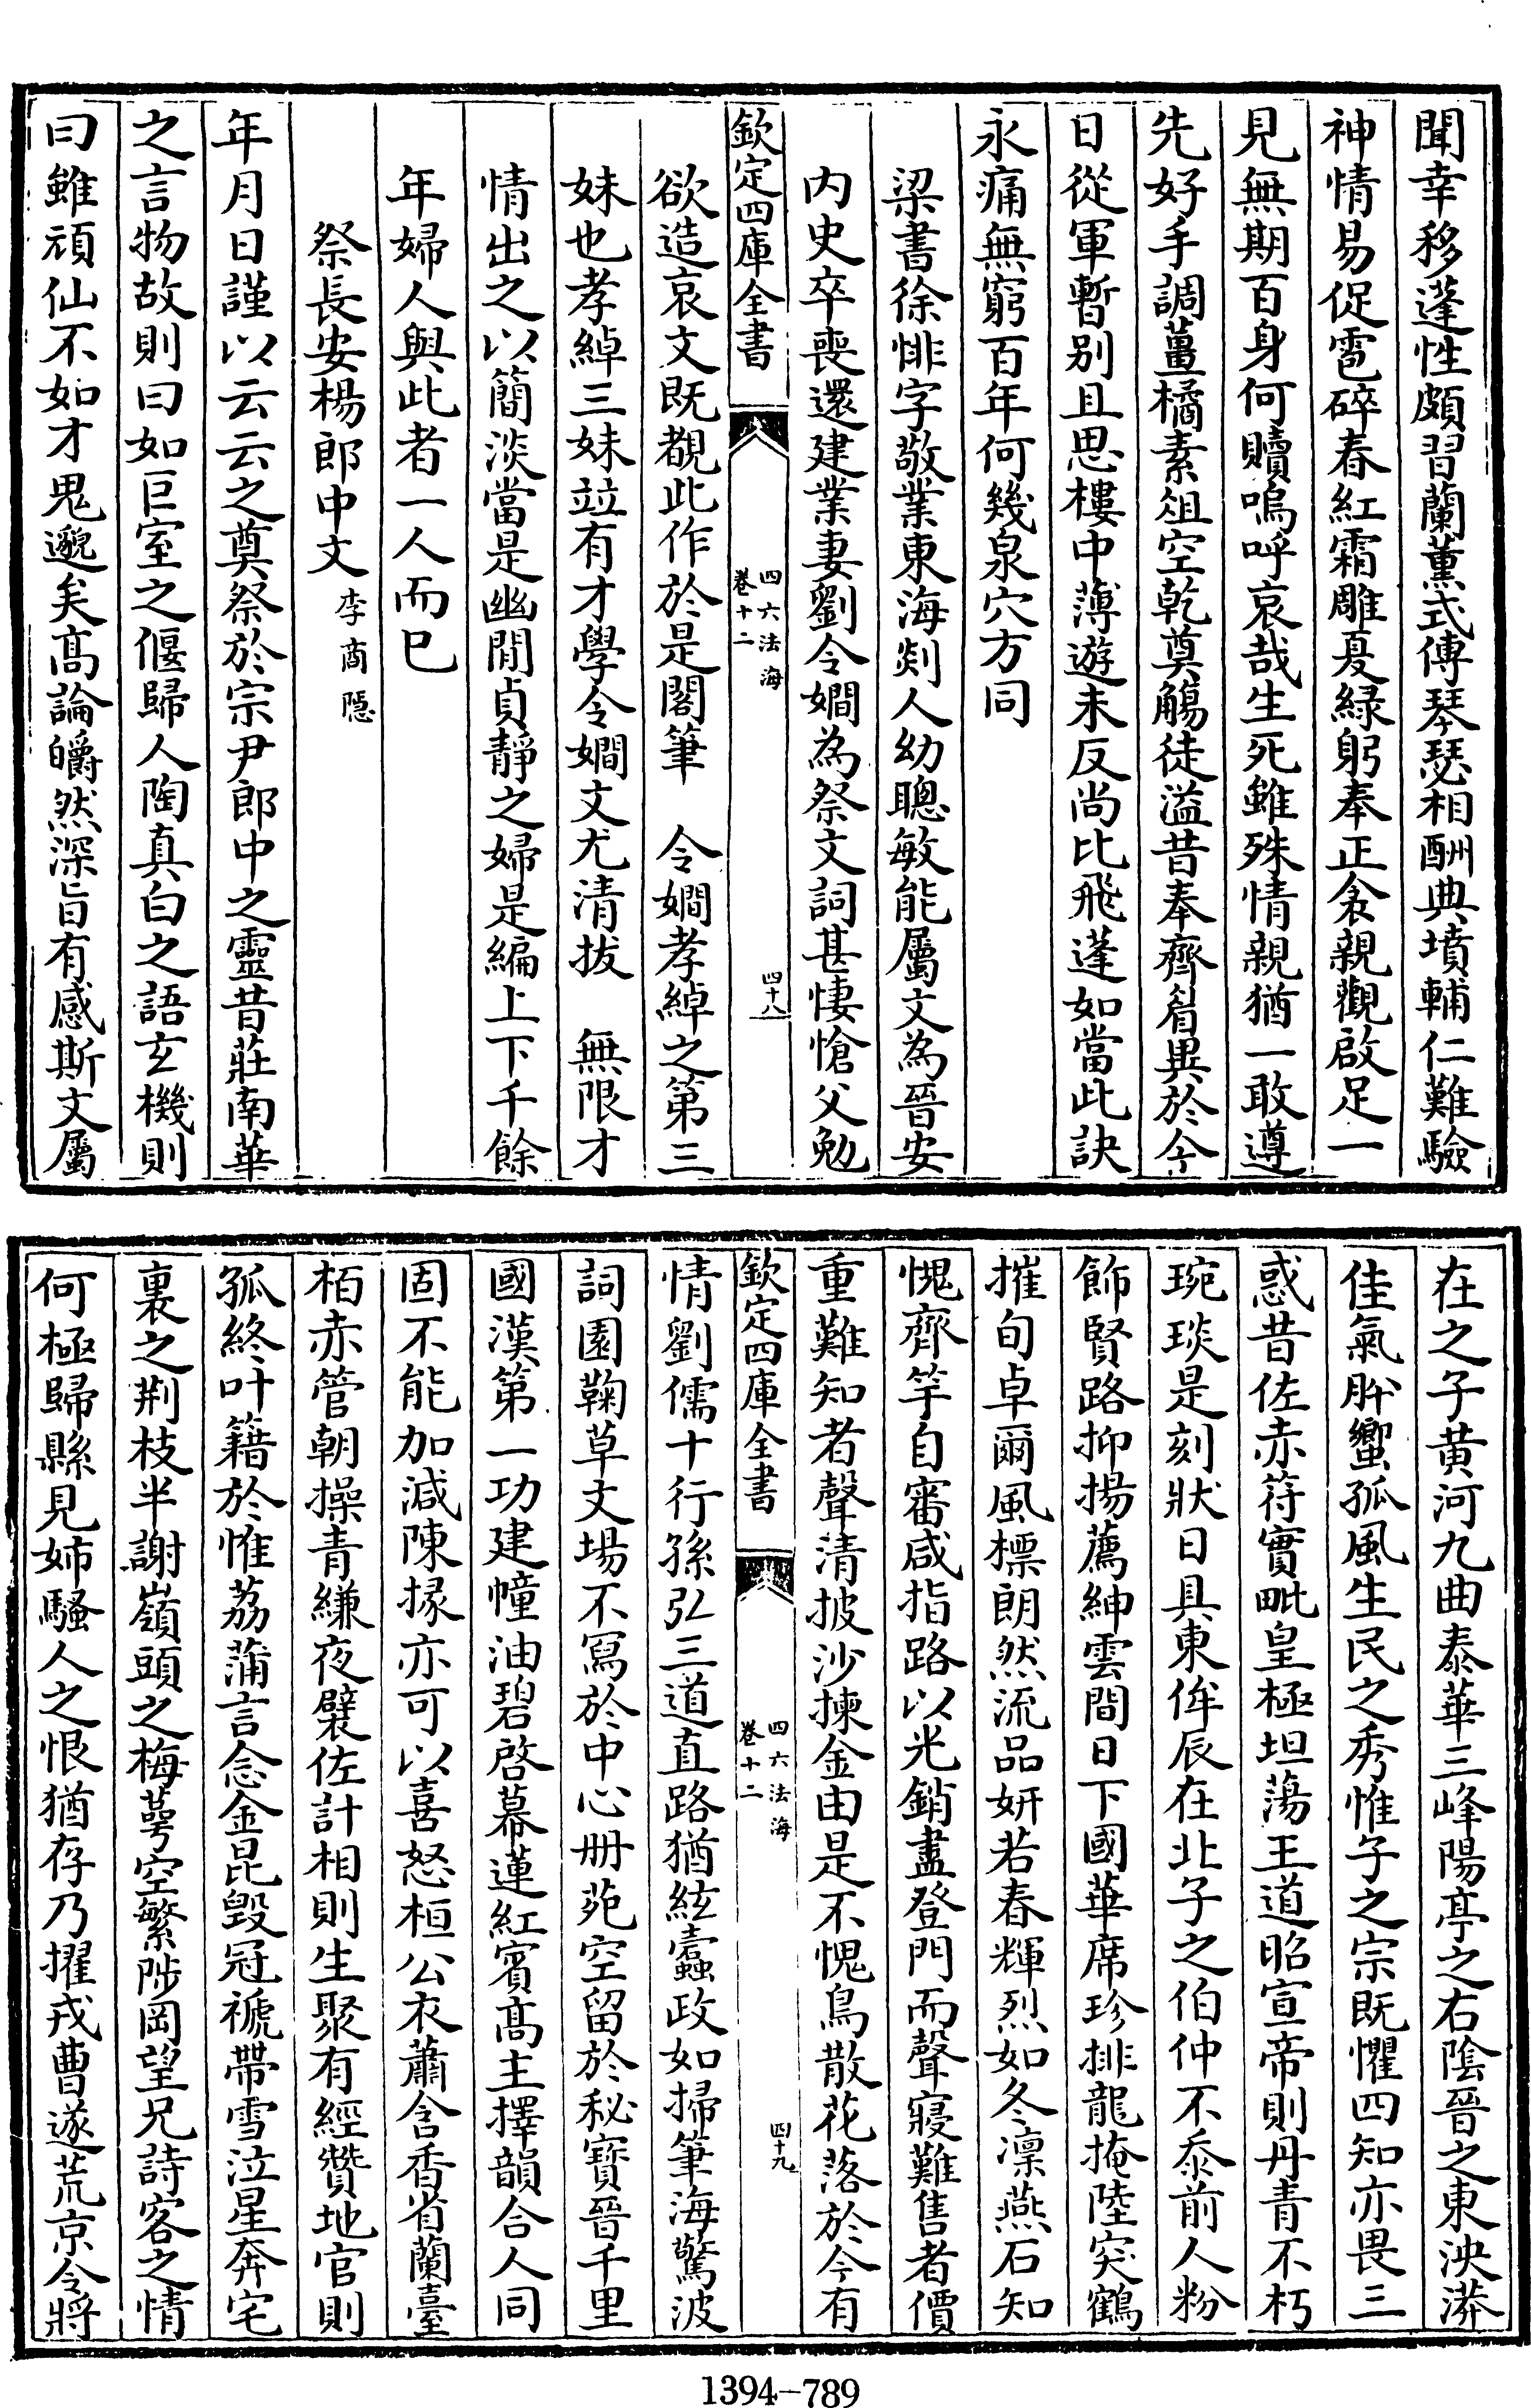 聞幸移蓬性頗習蘭薰式傳琴瑟相酬典墳輔仁難驗
神情易促雹碎春紅霜雕夏緑躬奉正衾親觀啟足一
見無期百身何贖嗚呼哀哉生死雖殊情親猶一敢遵
先好手調薑橘素俎空乾奠觴徒溢昔奉齊眉異於今
日從軍暫别且思樓中薄遊未反尚比飛蓬如當此訣
永痛無窮百年何幾泉穴方同
梁書徐悱字敬業東海剡人幼聰敏能屬文為晉安
内史卒喪還建業妻劉令嫺為祭文詞甚悽愴父勉
欽定四庫全書
四六法海
卷十二
四十八
欲造哀文既覩此作於是閣筆　令嫺孝綽之第三
妹也孝綽三妹竝有才學令嫺文尤清拔　無限才
情出之以簡淡當是幽閒貞靜之婦是編上下千餘
年婦人與此者一人而已
祭長安楊郎中文李商隱
年月日謹以云云之奠祭於宗尹郎中之靈昔莊南華
之言物故則曰如巨室之偃歸人陶真白之語玄機則
曰雖頑仙不如才鬼邈矣髙論皭然深旨有感斯文屬
在之子黄河九曲泰華三峰陽亭之右陰晉之東泱漭
佳氣肸蠁孤風生民之秀惟子之宗既懼四知亦畏三
惑昔佐赤符實毗皇極坦蕩王道昭宣帝則丹青不朽
琬琰是刻狀日具東侔辰在北子之伯仲不忝前人粉
飾賢路抑揚薦紳雲間日下國華席珍排龍掩陸突鶴
摧旬卓爾風標朗然流品妍若春輝烈如冬凛燕石知
愧齊竽自審咸指路以光銷盡登門而聲寢難售者價
重難知者聲清披沙揀金由是不愧鳥散花落於今有
欽定四庫全書
四六法海
卷十二
四十九
情劉儒十行孫弘三道直路猶絃蠹政如掃筆海驚波
詞園鞠草文場不寫於中心册苑空留於秘寳晉千里
國漢第一功建幢油碧啓幕蓮紅賓髙主擇韻合人同
固不能加減陳掾亦可以喜怒桓公衣蕭含香省蘭臺
栢赤管朝操青縑夜襞佐計相則生聚有經贊地官則
孤終叶籍於惟荔蒲言念金昆毁冠褫帶雪泣星奔宅
裏之荆枝半謝嶺頭之梅萼空繁陟岡望兄詩客之情
何極歸縣見姊騷人之恨猶存乃擢戎曹遂荒京令將
1394—789